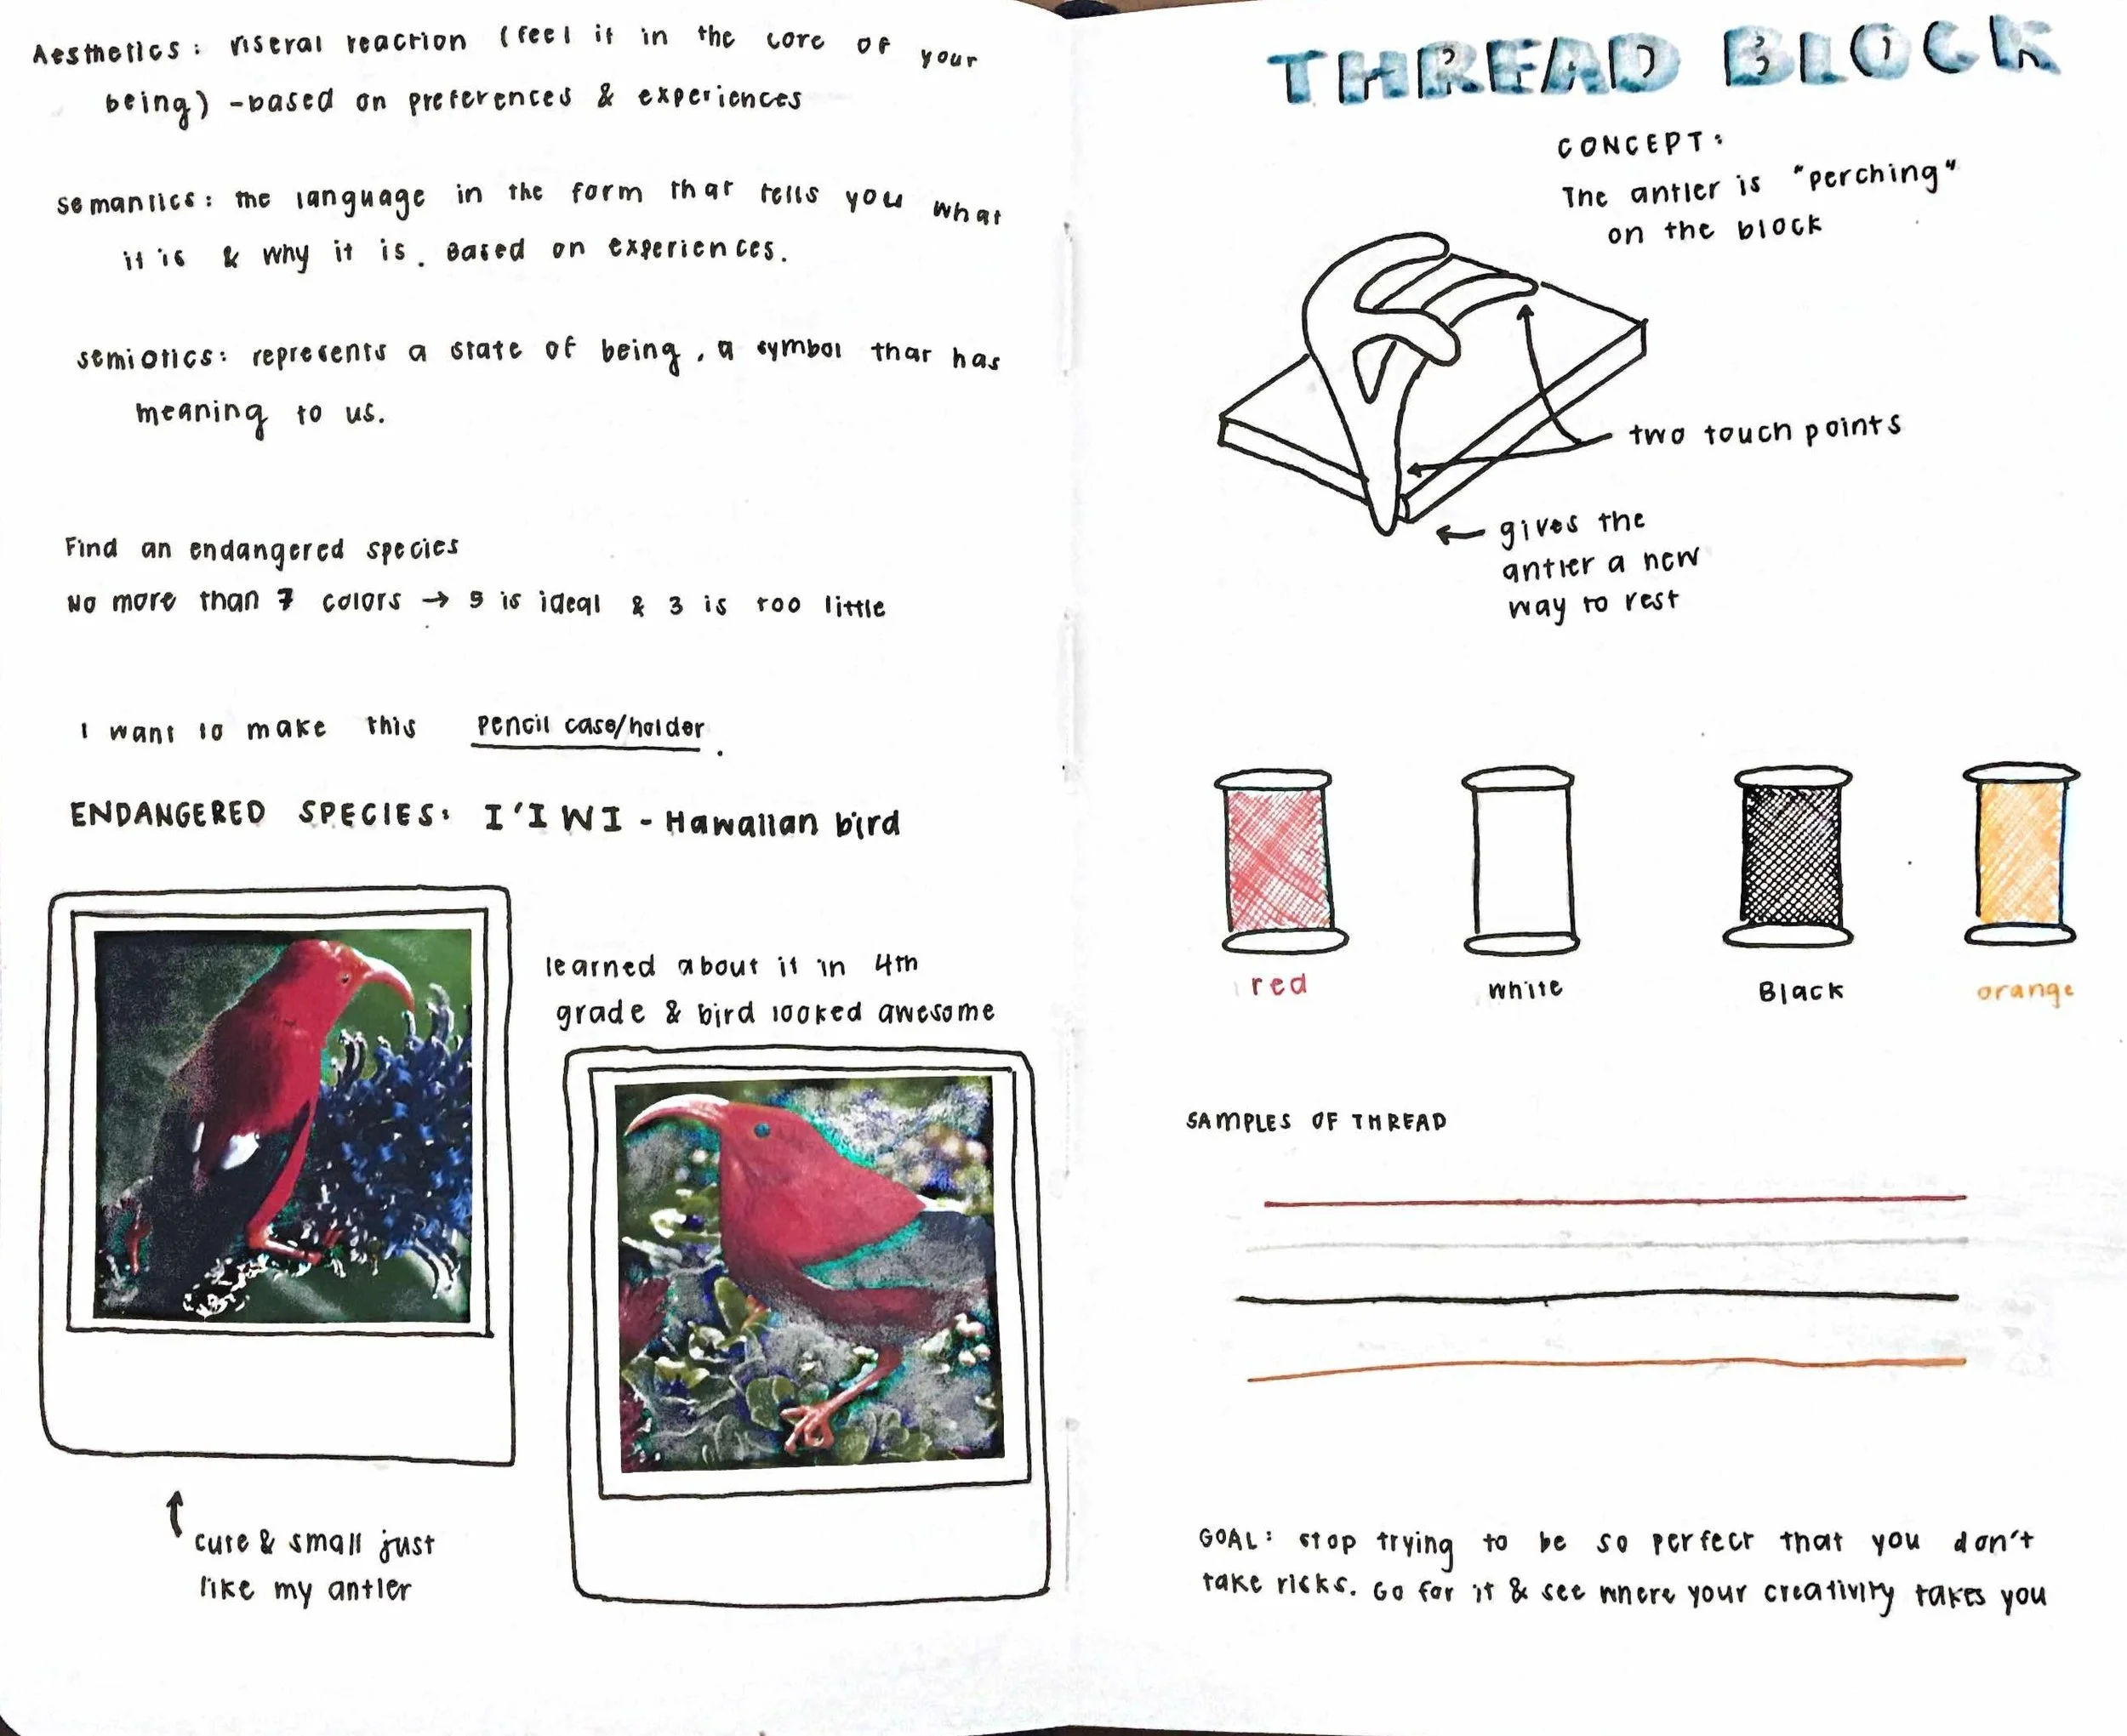 Aesthetics: viseral reaction (feel it in the core of your
being) - based on preferences & experiences
semantics: the language in the form that tells you what
it is & why it is. Based on experiences.
semiotics: represents a state of being, a symbol that has
meaning to us.
Find an endangered species
No more than 7 colors → 5 is ideal & 3 is too little
I want to make this pencil case/holder.
ENDANGERED SPECIES: I'IWI - Hawaiian bird
learned about it in 4th
grade & bird looked awesome
↑
cute & small just
like my antler
THREAD BLOCK
CONCEPT:
The antler is "perching"
on the block
two touch points
← gives the
antler a new
way to rest
red white Black orange
SAMPLES OF THREAD
GOAL: stop trying to be so perfect that you don't
take risks. Go for it & see where your creativity takes you